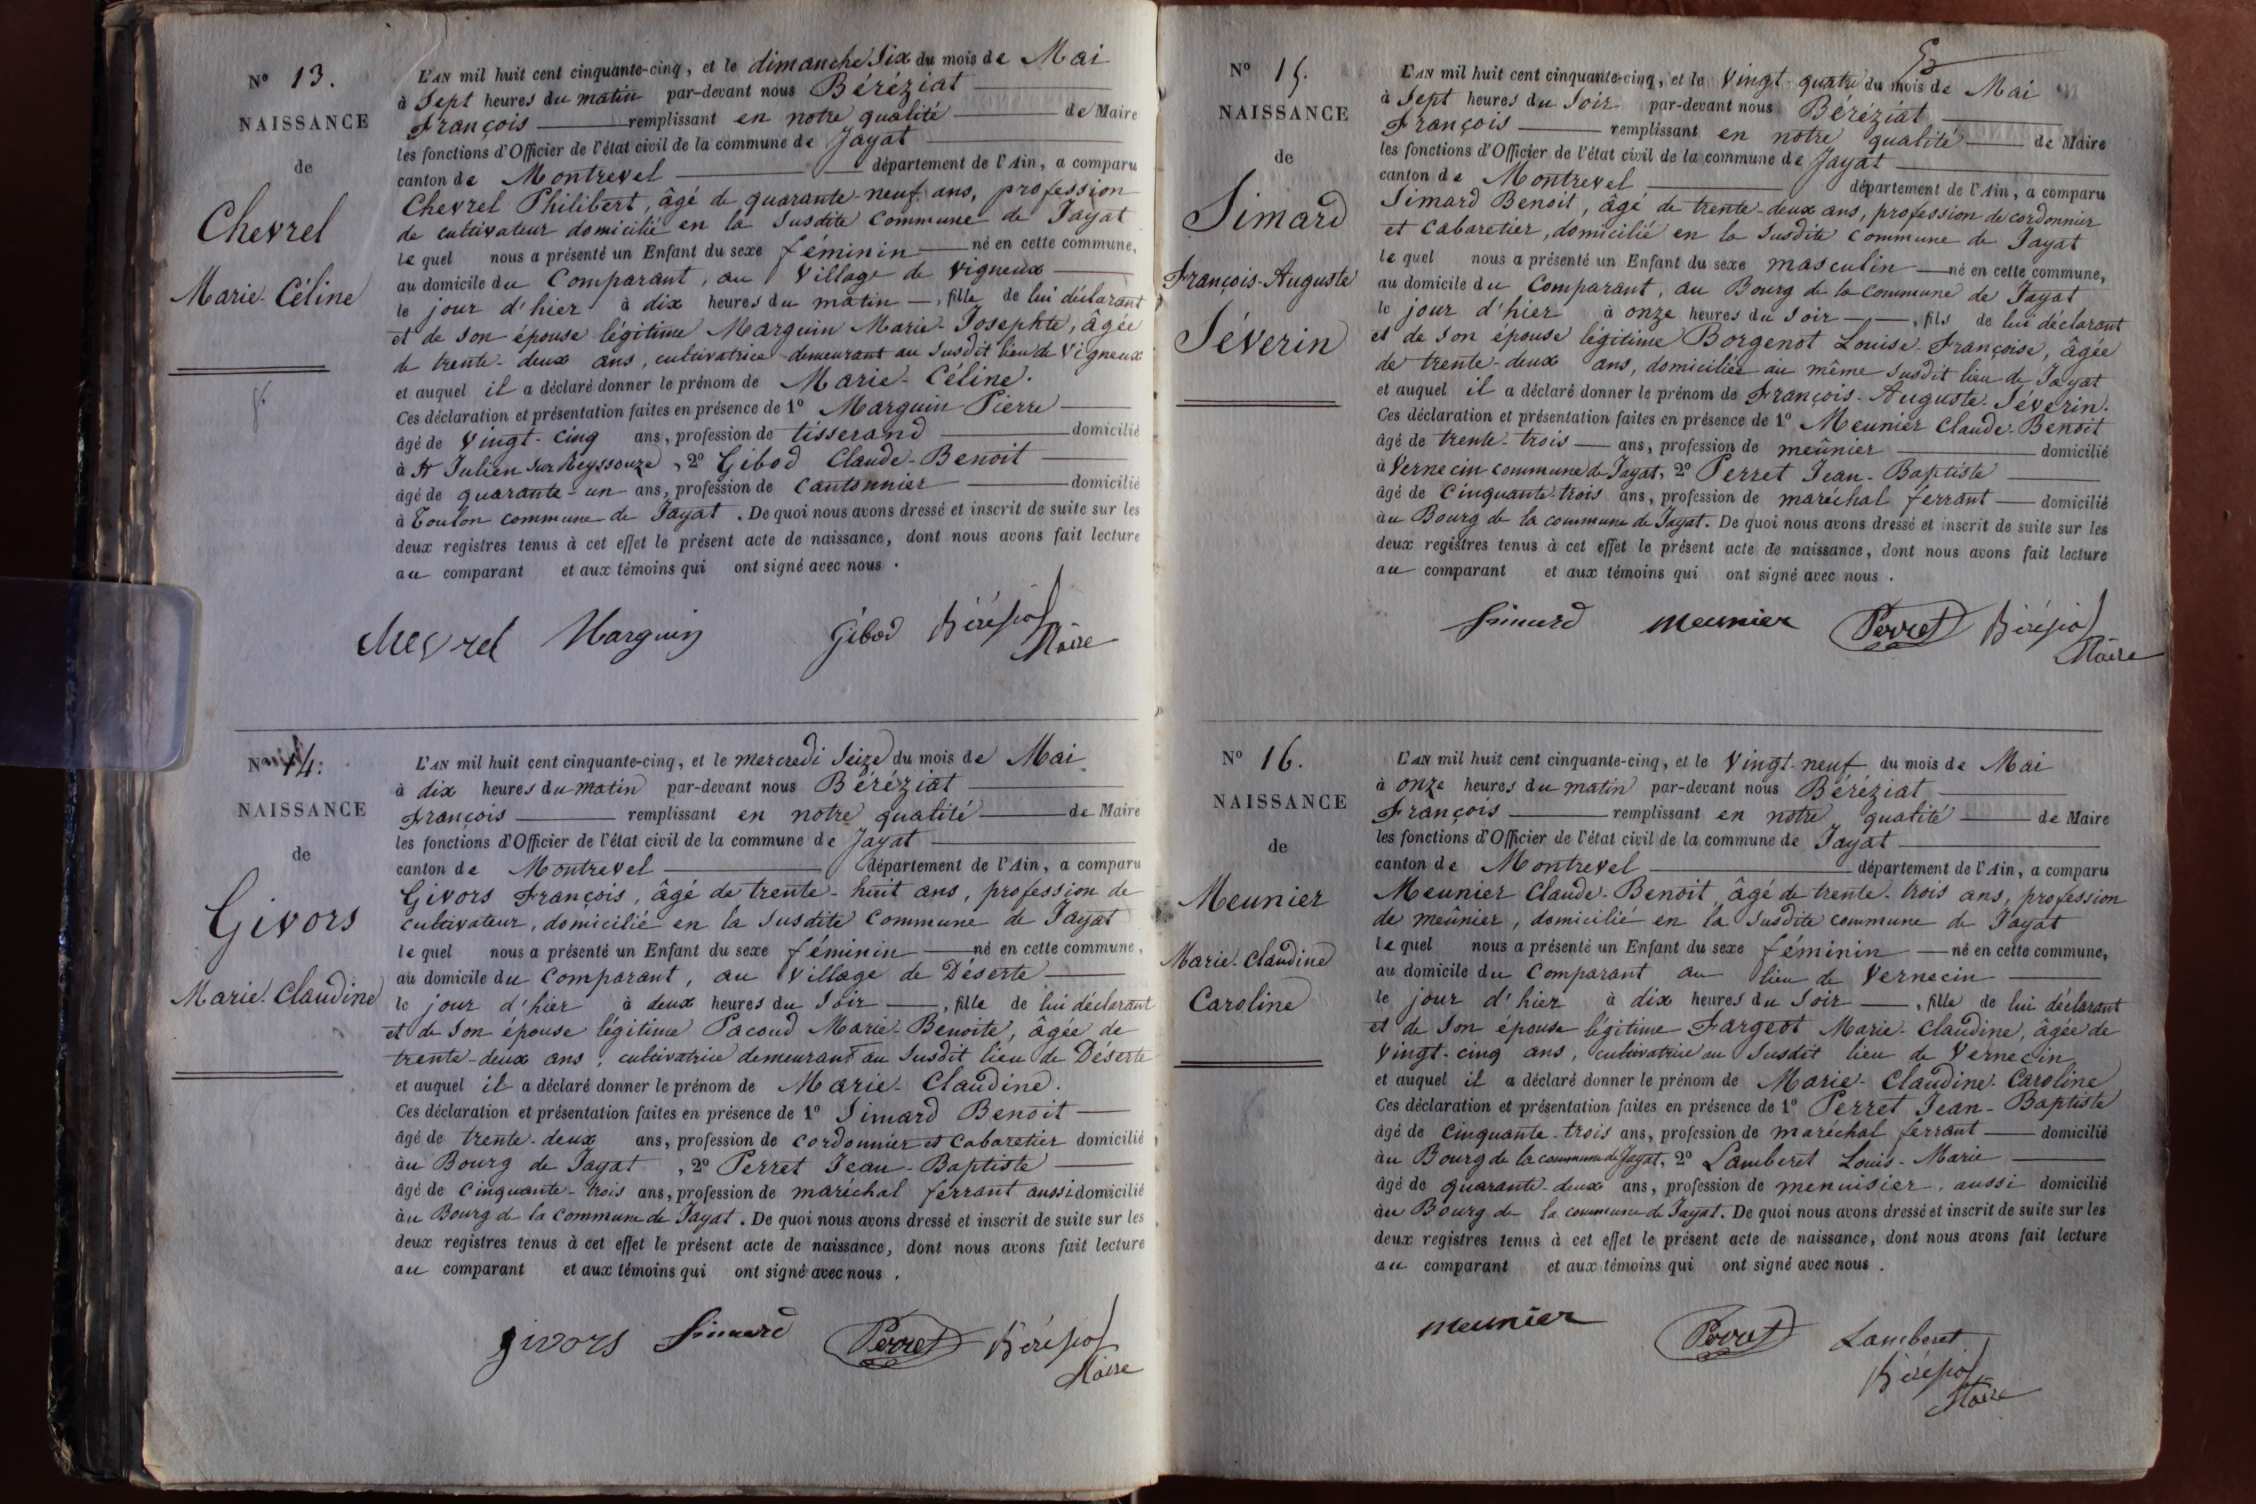 N° 13.
NAISSANCE
de
Chevrel
Marie-Céline
L'AN mil huit cent cinquante-cinq, et le dimanche Six du mois de Mai
à Sept heures du matin par-devant nous Béréziat
François remplissant en notre qualité de Maire
les fonctions d'Officier de l'état civil de la commune de Jayat
canton de Montrevel département de l'Ain, a comparu
Chevrel Philibert, âgé de quarante-neuf ans, profession
de cultivateur domicilié en la susdite Commune de Jayat
lequel nous a présenté un Enfant du sexe féminin né en cette commune,
au domicile du Comparant, au Village de Vigneux
le jour d'hier à dix heures du matin, fille de lui déclarant
et de son épouse légitime Marguin Marie-Josephte, âgée
de trente-deux ans, cultivatrice demeurant au susdit lieu de Vigneux
et auquel il a déclaré donner le prénom de Marie-Céline.
Ces déclaration et présentation faites en présence de 1° Marguin Pierre
âgé de vingt-cinq ans, profession de tisserand domicilié
à St Julien sur Reyssouze, 2° Gibod Claude-Benoit
âgé de quarante-un ans, profession de Cantonnier domicilié
à Toulon commune de Jayat. De quoi nous avons dressé et inscrit de suite sur les
deux registres tenus à cet effet le présent acte de naissance, dont nous avons fait lecture
au comparant et aux témoins qui ont signé avec nous.
Chevrel Marguin Gibod Béréziat
Maire
N° 14.
NAISSANCE
de
Givors
Marie-Claudine
L'AN mil huit cent cinquante-cinq, et le mercredi Seize du mois de Mai
à dix heures du matin par-devant nous Béréziat
François remplissant en notre qualité de Maire
les fonctions d'Officier de l'état civil de la commune de Jayat
canton de Montrevel département de l'Ain, a comparu
Givors François, âgé de trente-huit ans, profession de
cultivateur, domicilié en la susdite Commune de Jayat
lequel nous a présenté un Enfant du sexe féminin né en cette commune,
au domicile du Comparant, au Village de Déserte
le jour d'hier à deux heures du soir, fille de lui déclarant
et de son épouse légitime Pacoud Marie-Benoite, âgée de
trente-deux ans, cultivatrice demeurant au susdit lieu de Déserte
et auquel il a déclaré donner le prénom de Marie-Claudine.
Ces déclaration et présentation faites en présence de 1° Simard Benoit
âgé de trente-deux ans, profession de cordonnier et Cabaretier domicilié
au Bourg de Jayat, 2° Perret Jean-Baptiste
âgé de Cinquante-trois ans, profession de maréchal ferrant aussi domicilié
au Bourg de la Commune de Jayat. De quoi nous avons dressé et inscrit de suite sur les
deux registres tenus à cet effet le présent acte de naissance, dont nous avons fait lecture
au comparant et aux témoins qui ont signé avec nous.
givors Simard Perret Béréziat
Maire
N° 15.
NAISSANCE
de
Simard
François-Auguste
Séverin
L'AN mil huit cent cinquante-cinq, et le Vingt-quatre du mois de Mai
à Sept heures du Soir par-devant nous Béréziat
François remplissant en notre qualité de Maire
les fonctions d'Officier de l'état civil de la commune de Jayat
canton de Montrevel département de l'Ain, a comparu
Simard Benoit, âgé de trente-deux ans, profession de cordonnier
et Cabaretier, domicilié en la susdite Commune de Jayat
lequel nous a présenté un Enfant du sexe masculin né en cette commune,
au domicile du Comparant, au Bourg de la Commune de Jayat
le jour d'hier à onze heures du Soir, fils de lui déclarant
et de son épouse légitime Borgenot Louise-Françoise, âgée
de trente-deux ans, domiciliée au même susdit lieu de Jayat
et auquel il a déclaré donner le prénom de François-Auguste-Séverin.
Ces déclaration et présentation faites en présence de 1° Meunier Claude-Benoit
âgé de trente-trois ans, profession de meûnier domicilié
à Vernecin commune de Jayat, 2° Perret Jean-Baptiste
âgé de Cinquante-trois ans, profession de maréchal ferrant domicilié
au Bourg de la commune de Jayat. De quoi nous avons dressé et inscrit de suite sur les
deux registres tenus à cet effet le présent acte de naissance, dont nous avons fait lecture
au comparant et aux témoins qui ont signé avec nous.
Simard meunier Perret Béréziat
Maire
N° 16.
NAISSANCE
de
Meunier
Marie-Claudine
Caroline
L'AN mil huit cent cinquante-cinq, et le Vingt-neuf du mois de Mai
à onze heures du matin par-devant nous Béréziat
François remplissant en notre qualité de Maire
les fonctions d'Officier de l'état civil de la commune de Jayat
canton de Montrevel département de l'Ain, a comparu
Meunier Claude-Benoit, âgé de trente-trois ans, profession
de meûnier, domicilié en la susdite commune de Jayat
lequel nous a présenté un Enfant du sexe féminin né en cette commune,
au domicile du Comparant au lieu de Vernecin
le jour d'hier à dix heures du Soir, fille de lui déclarant
et de son épouse légitime Fargeot Marie-Claudine, âgée de
Vingt-cinq ans, cultivatrice au susdit lieu de Vernecin
et auquel il a déclaré donner le prénom de Marie-Claudine-Caroline
Ces déclaration et présentation faites en présence de 1° Perret Jean-Baptiste
âgé de Cinquante-trois ans, profession de maréchal ferrant domicilié
au Bourg de la commune de Jayat, 2° Lamberet Louis-Marie
âgé de quarante-deux ans, profession de menuisier, aussi domicilié
au Bourg de la commune de Jayat. De quoi nous avons dressé et inscrit de suite sur les
deux registres tenus à cet effet le présent acte de naissance, dont nous avons fait lecture
au comparant et aux témoins qui ont signé avec nous.
meunier Perret Lamberet
Béréziat
Maire